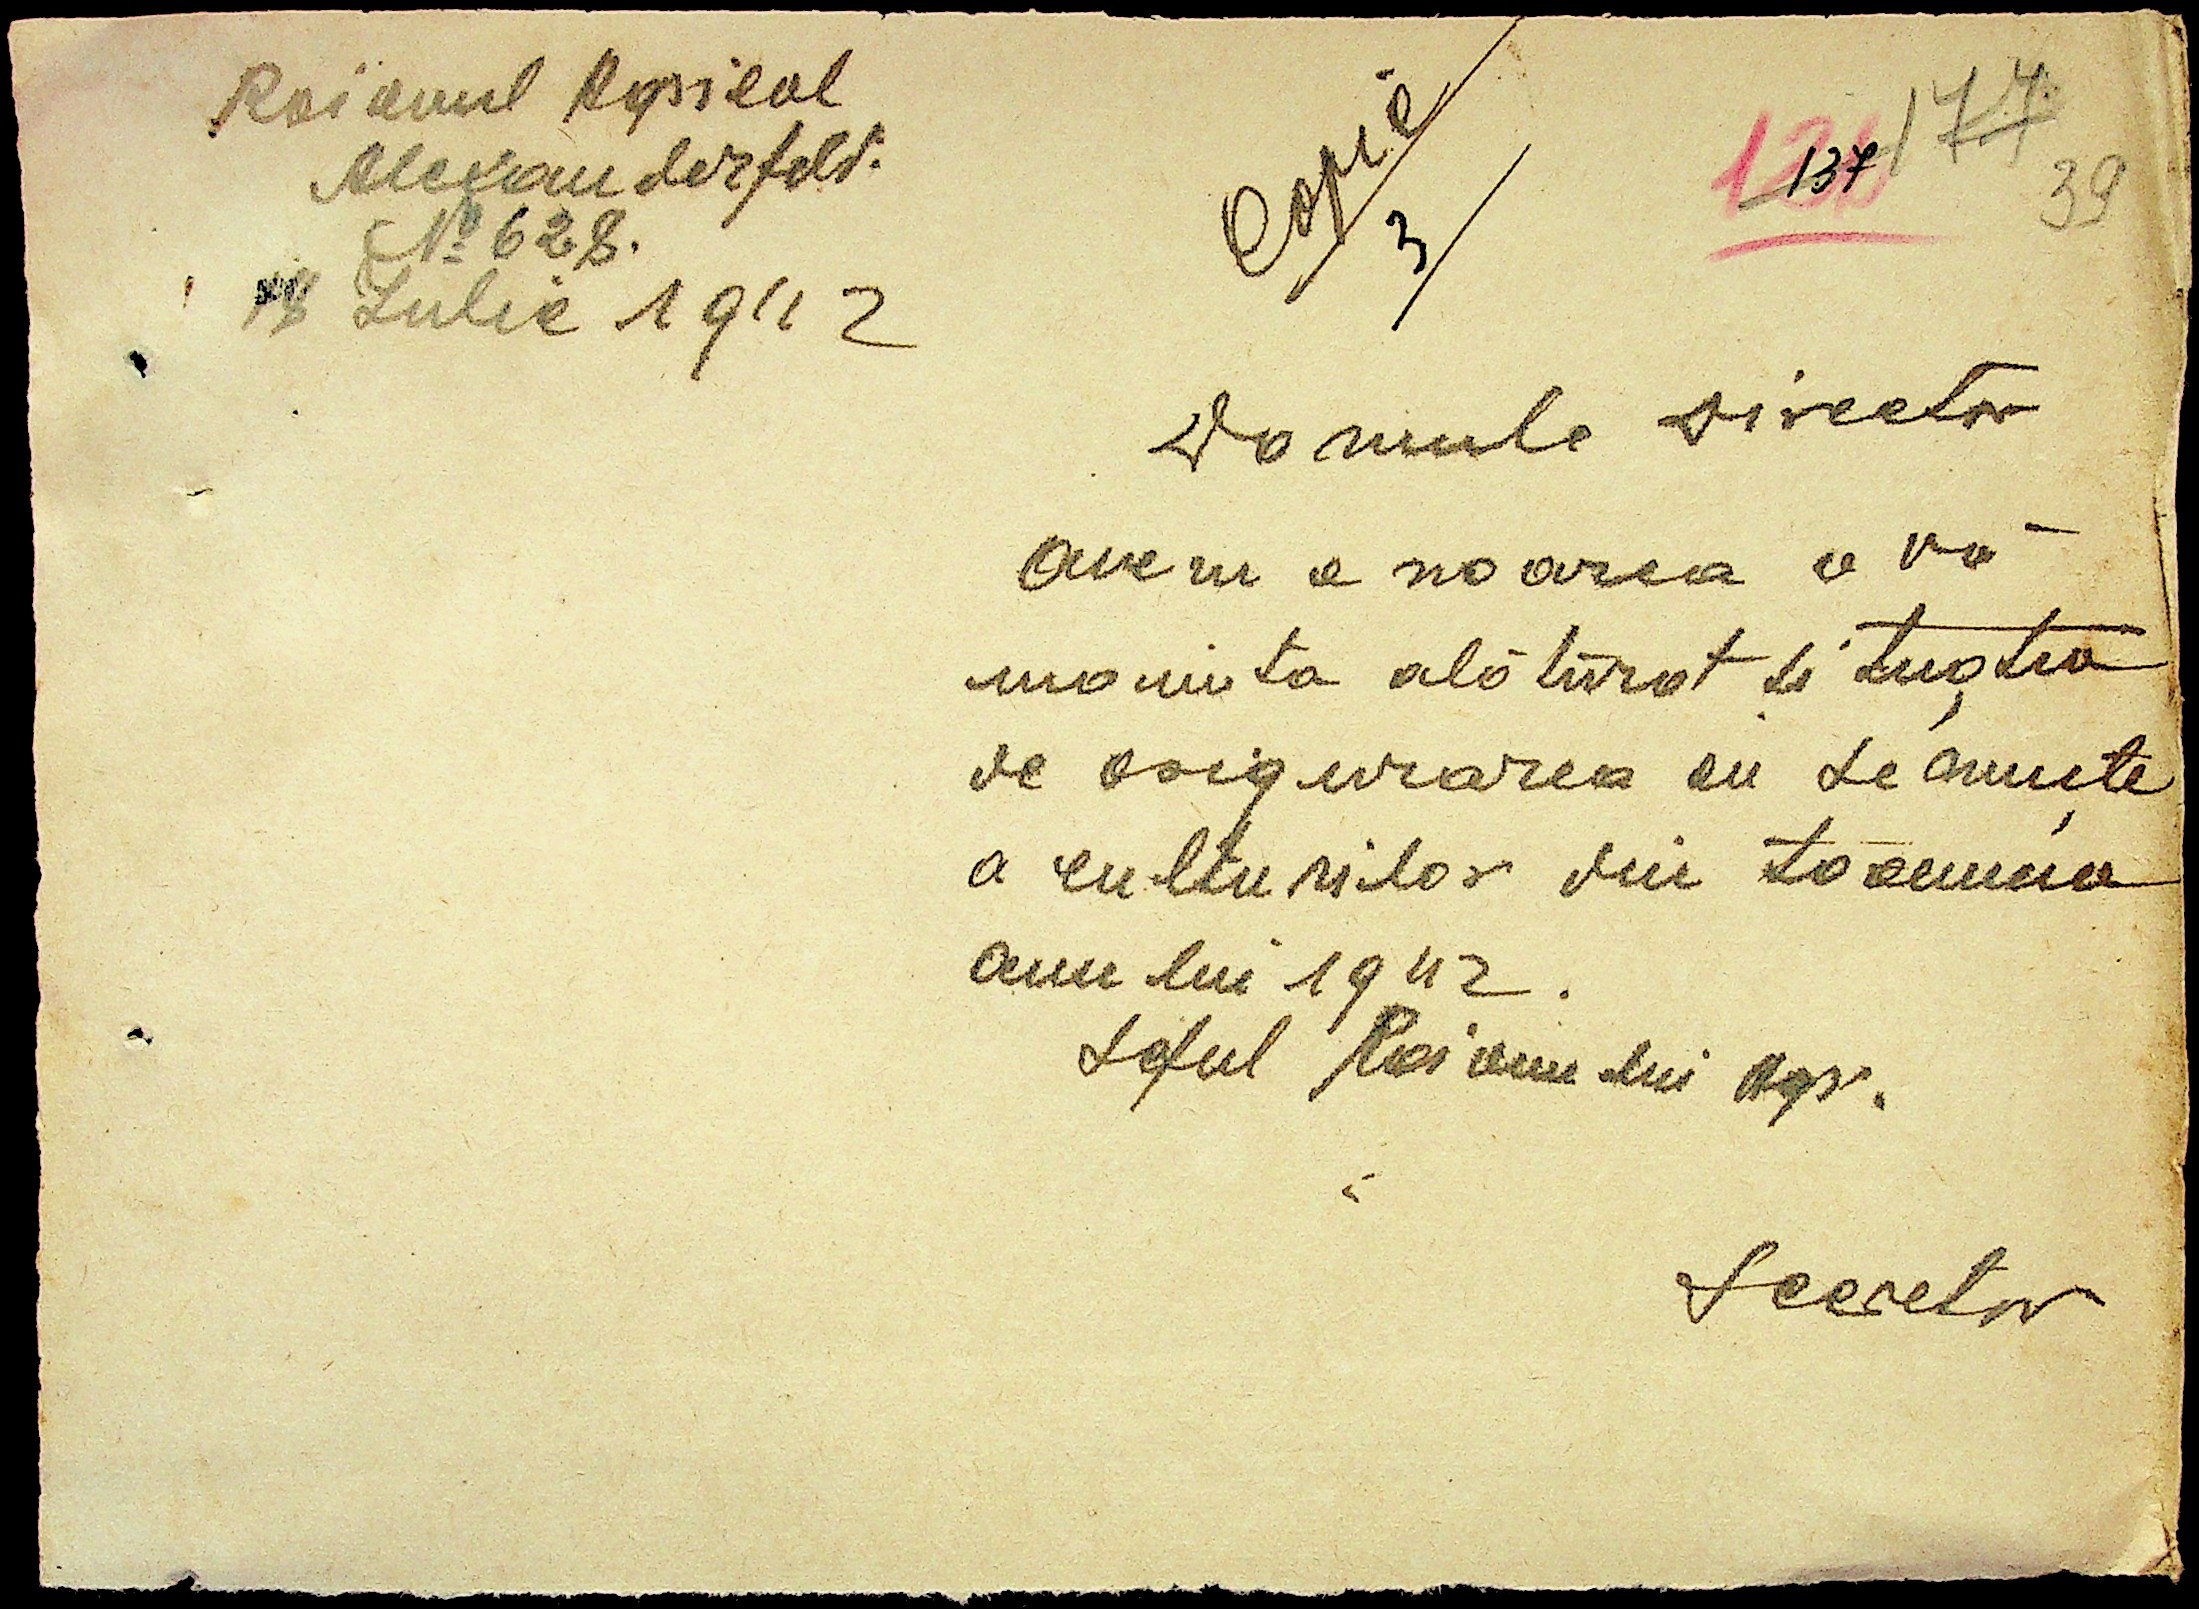 Raionul Agricol
Alexanderfeld.
No 628.
Iulie 1942
Copie
3
137
177
39
Domnule Director
Avem onoarea a vă
inainta alăturat situația
de asigurarea cu semințe
a culturilor din toamna
anului 1942.
Șeful Raionului Agr.
Secretar